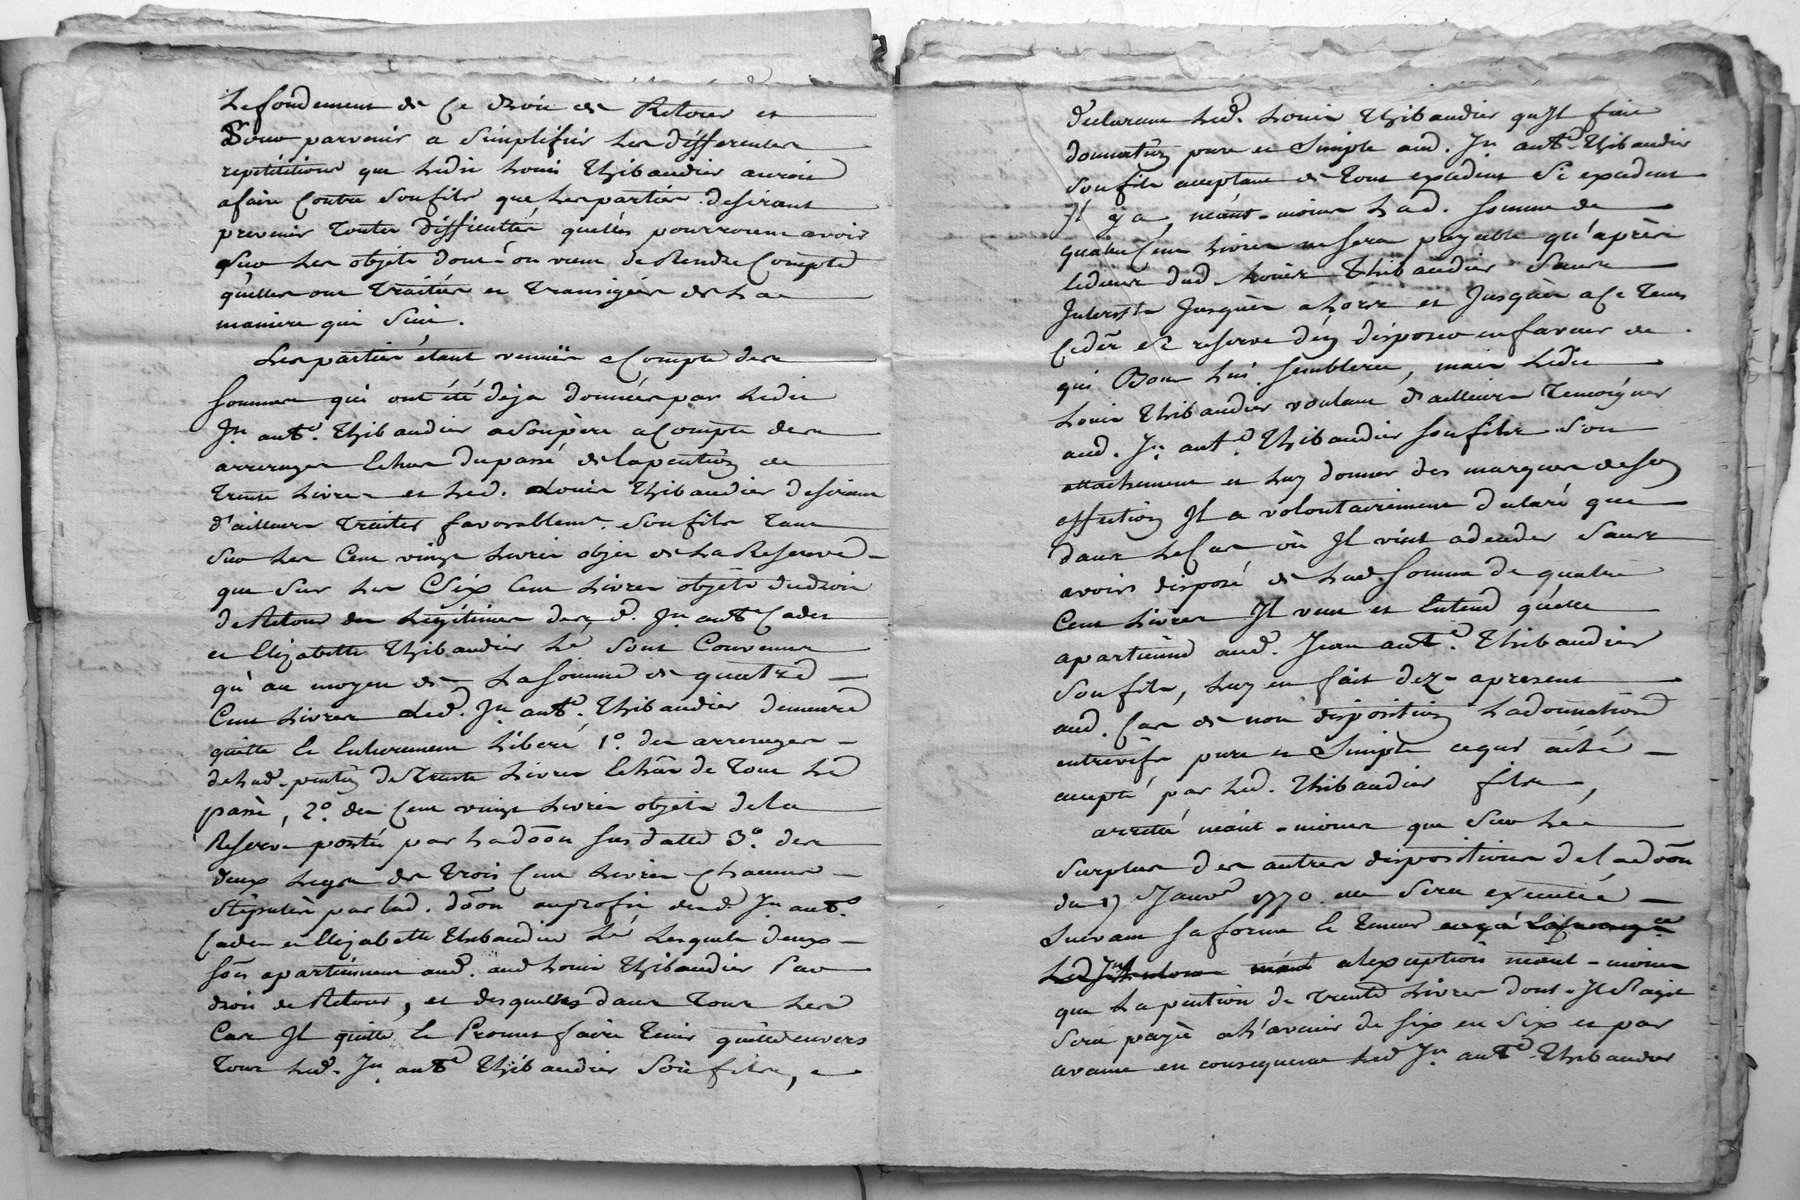 Le fondement de Ce droit de Retour et
Pour parvenir a Simplifier Les differentes
repetitions que Ledit Louis Thibaudier auroit
a faire Contre Son fils que Les parties desirant
prevenir Toutes difficultés quelles pourroient avoir
Sur Les objets dont on vient de Rendre Compte
quelles ont Traitées et Transigées de La
maniere qui Suit.
Les parties étant venües a Compte des
Sommes qui ont été deja données par Ledit
Jn antne. Thibaudier a Son père a Compte des
arrerages Echus du passé de la pention de
Trente Livres et Led. Louis Thibaudier desirant
d'ailleurs Traiter favorablemt. Son fils Tant
Sur Les Cent vingt Livres objet de La Reserve
que Sur Les Six Cent Livres objets du droit
de Retour des Légitimes des d. Jn antne Cadet
et Elizabette Thibaudier Le Sont Convenus
qu'au moyen de La Somme de quatre
Cent Livres Led. Jn antne. Thibaudier demeure
quitte Et Entierement Liberé 1o. des arrerages
de Lad. pention de Trente Livres Echus de Tout Le
passé, 2o. des Cent vingt Livres objets de la
Reserve portée par La doôn Sus datte 3o. des
deux Legs de Trois Cent Livres Chacun
Stipulés par Lad. doôn au profit desd. Jn antne.
Cadet et Elizabette Thibaudier Lesquels deux
Sôes apartiennent aud. Louis Thibaudier Par
droit de Retour, et desquelles dans Tous Les
Cas Il quitte Et Promet faire Tenir quitte envers
Tous Led. Jn antne Thibaudier Son fils, 
declarant Led. Louis Thibaudier qu'Il fait
donnation pure et Simple aud. Jn antne. Thibaudier
Son fils acceptant de Tout excedent Si excedent
Il y a néant-moins Lad. Somme de
quatre Cent Livres ne Sera payable qu'après
le deces dud. Louis Thibaudier Sans
Interets Jusques a Lors et Jusques a Ce Tems
Cedit Se reserve d'en disposer en faveur de
qui Bon Lui Semblera, mais Ledit
Louis Thibaudier voulant d'ailleurs Temoigner
aud. Jn. antne. Thibaudier Son fils Son
attachement et Luy donner des marques de Son
affection Il a volontairement declaré que
dans Le Cas où Il vint a deceder Sans
avoir disposé de Lad. Somme de quatre
Cent Livres Il veut et Entend qu'elle
apartienne aud. Jean antne. Thibaudier
Son fils, Luy en fait dez-apresent
aud. Cas de non disposition La donnation
entrevifs pure et Simple ce qui a été
accepté par Led. Thibaudier fils,
arretté néant-moins que Sur Le
Surplus des autres dispositions de la doôn
du 17 Janvr 1770 elle Sera executée
Suivant Sa forme Et Teneur
a l'exception néant-moins
que La pention de Trente Livres dont Il S'agit
Sera payée a L'avenir de Six en Six et par
avance en consequence Led Jn antne Thibaudier